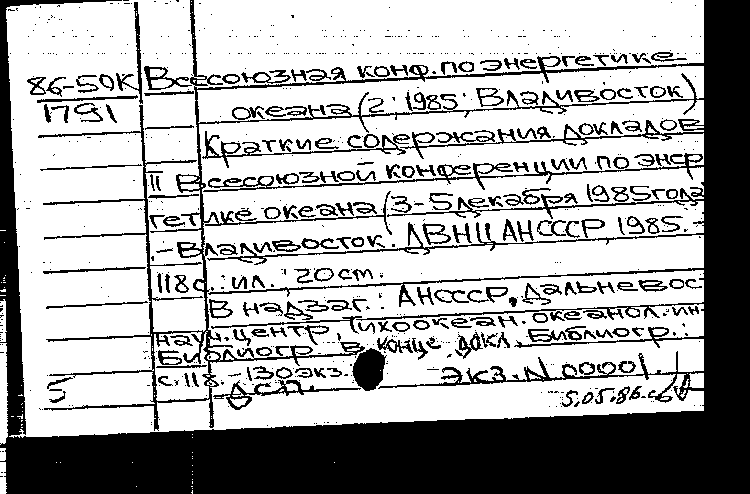 86-50К Всесоюзная конф. по энергетике
1791 океана (2; 1985; Владивосток)
Краткие содержания докладов
II Всесоюзной конференции по энер
гетике океана (3-5 декабря 1985 года
.-Владивосток: ДВНЦ АНСССР, 1985.-
118 с.: ил.; 20 см.
В надзаг.: АНСССР, Дальневос-
науч. центр, Тихоокеан. океанол. ин-
Библиогр. в конце докл. Библиогр.:
с. 118. -130 экз.
5 ДСП. экз. N 00001.
5.05.86.